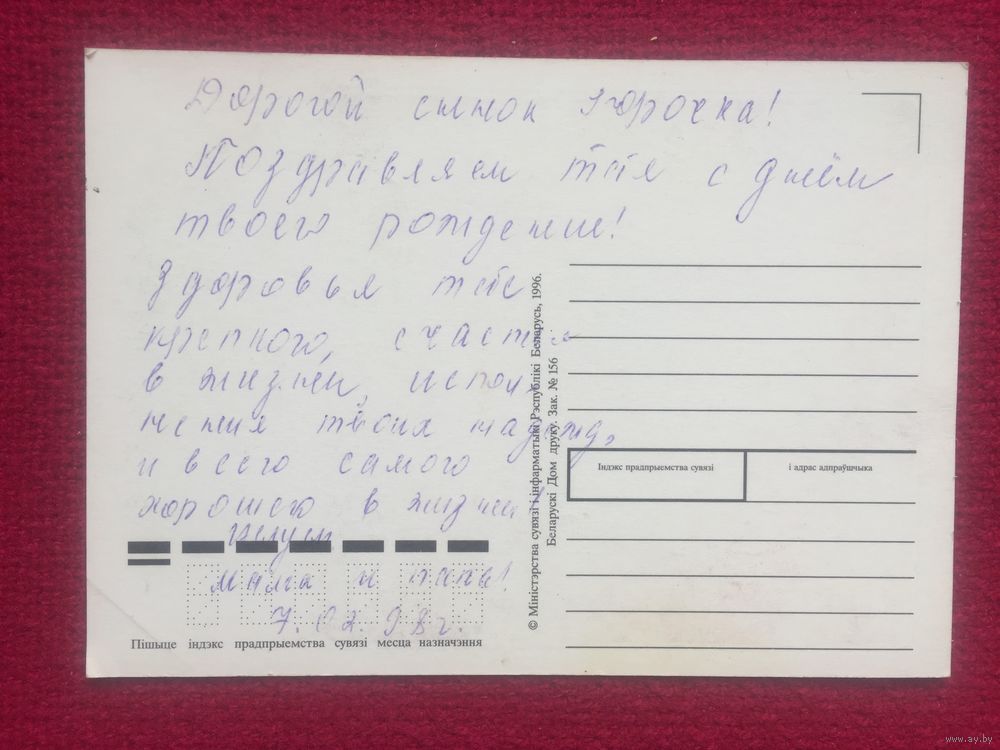 Дорогой сынок Игорочка!
Поздравляем тебя с днём
твоего рождение!
Здоровья тебе
крепкого, счастья
в жизни, испол
нения твоих надежд,
и всего самого
хорошего в жизни!
Целуем
мама и папа!
7.02.98г.
Пішыце індэкс прадпрыемства сувязі месца назначэння
© Міністэрства сувязі і інфарматыкі Рэспублікі Беларусь, 1996.
Беларускі Дом друку. Зак. № 156
Індэкс прадпрыемства сувязі
і адрас адпраўшчыка
www.ay.by